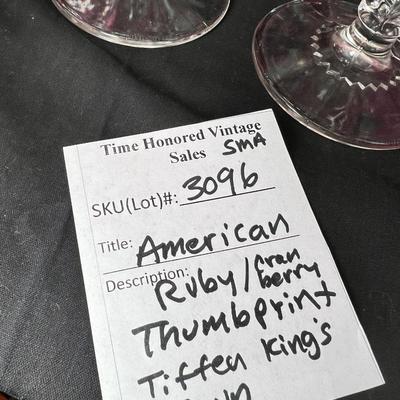 Time Honored Vintage
Sales SMA
SKU(Lot)#: 3096
Title: American
Description:
Ruby/Cran
berry
Thumbprint
Tiffen King's